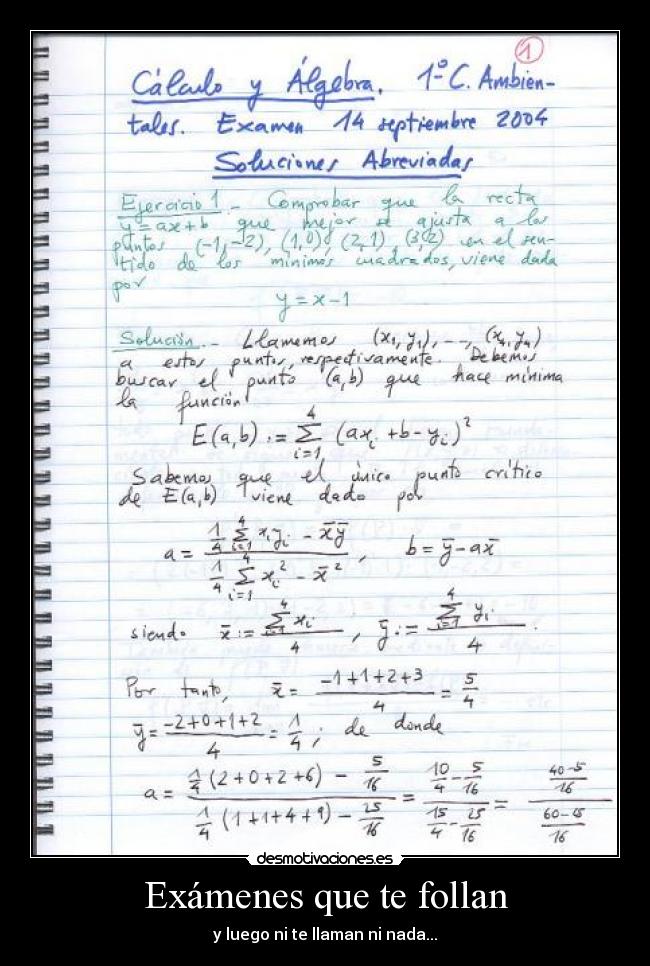 1
Cálculo y Álgebra. 1º C. Ambien-
tales. Examen 14 septiembre 2004
Soluciones Abreviadas
Ejercicio 1.- Comprobar que la recta
y=ax+b que mejor se ajusta a los
puntos (-1,-2), (1,0), (2,1), (3,2) en el sen-
tido de los mínimos cuadrados, viene dada
por
y=x-1
Solución.- Llamemos (x₁,y₁), ..., (x₄,y₄)
a estos puntos, respectivamente. Debemos
buscar el punto (a,b) que hace mínima
la función
E(a,b) := ∑_{i=1}^{4} (ax_i+b-y_i)²
Sabemos que el único punto crítico
de E(a,b) viene dado por
a = (1/4 ∑_{i=1}^{4} x_i y_i - x̄ȳ) / (1/4 ∑_{i=1}^{4} x_i² - x̄²), b = ȳ-ax̄
siendo x̄ := (∑_{i=1}^{4} x_i)/4, ȳ := (∑_{i=1}^{4} y_i)/4.
Por tanto, x̄ = (-1+1+2+3)/4 = 5/4
ȳ = (-2+0+1+2)/4 = 1/4; de donde
a = (1/4 (2+0+2+6) - 5/16) / (1/4 (1+1+4+9) - 25/16) = (10/4 - 5/16) / (15/4 - 25/16) = ((40-5)/16) / (/16)
desmotivaciones.es
Exámenes que te follan
y luego ni te llaman ni nada...